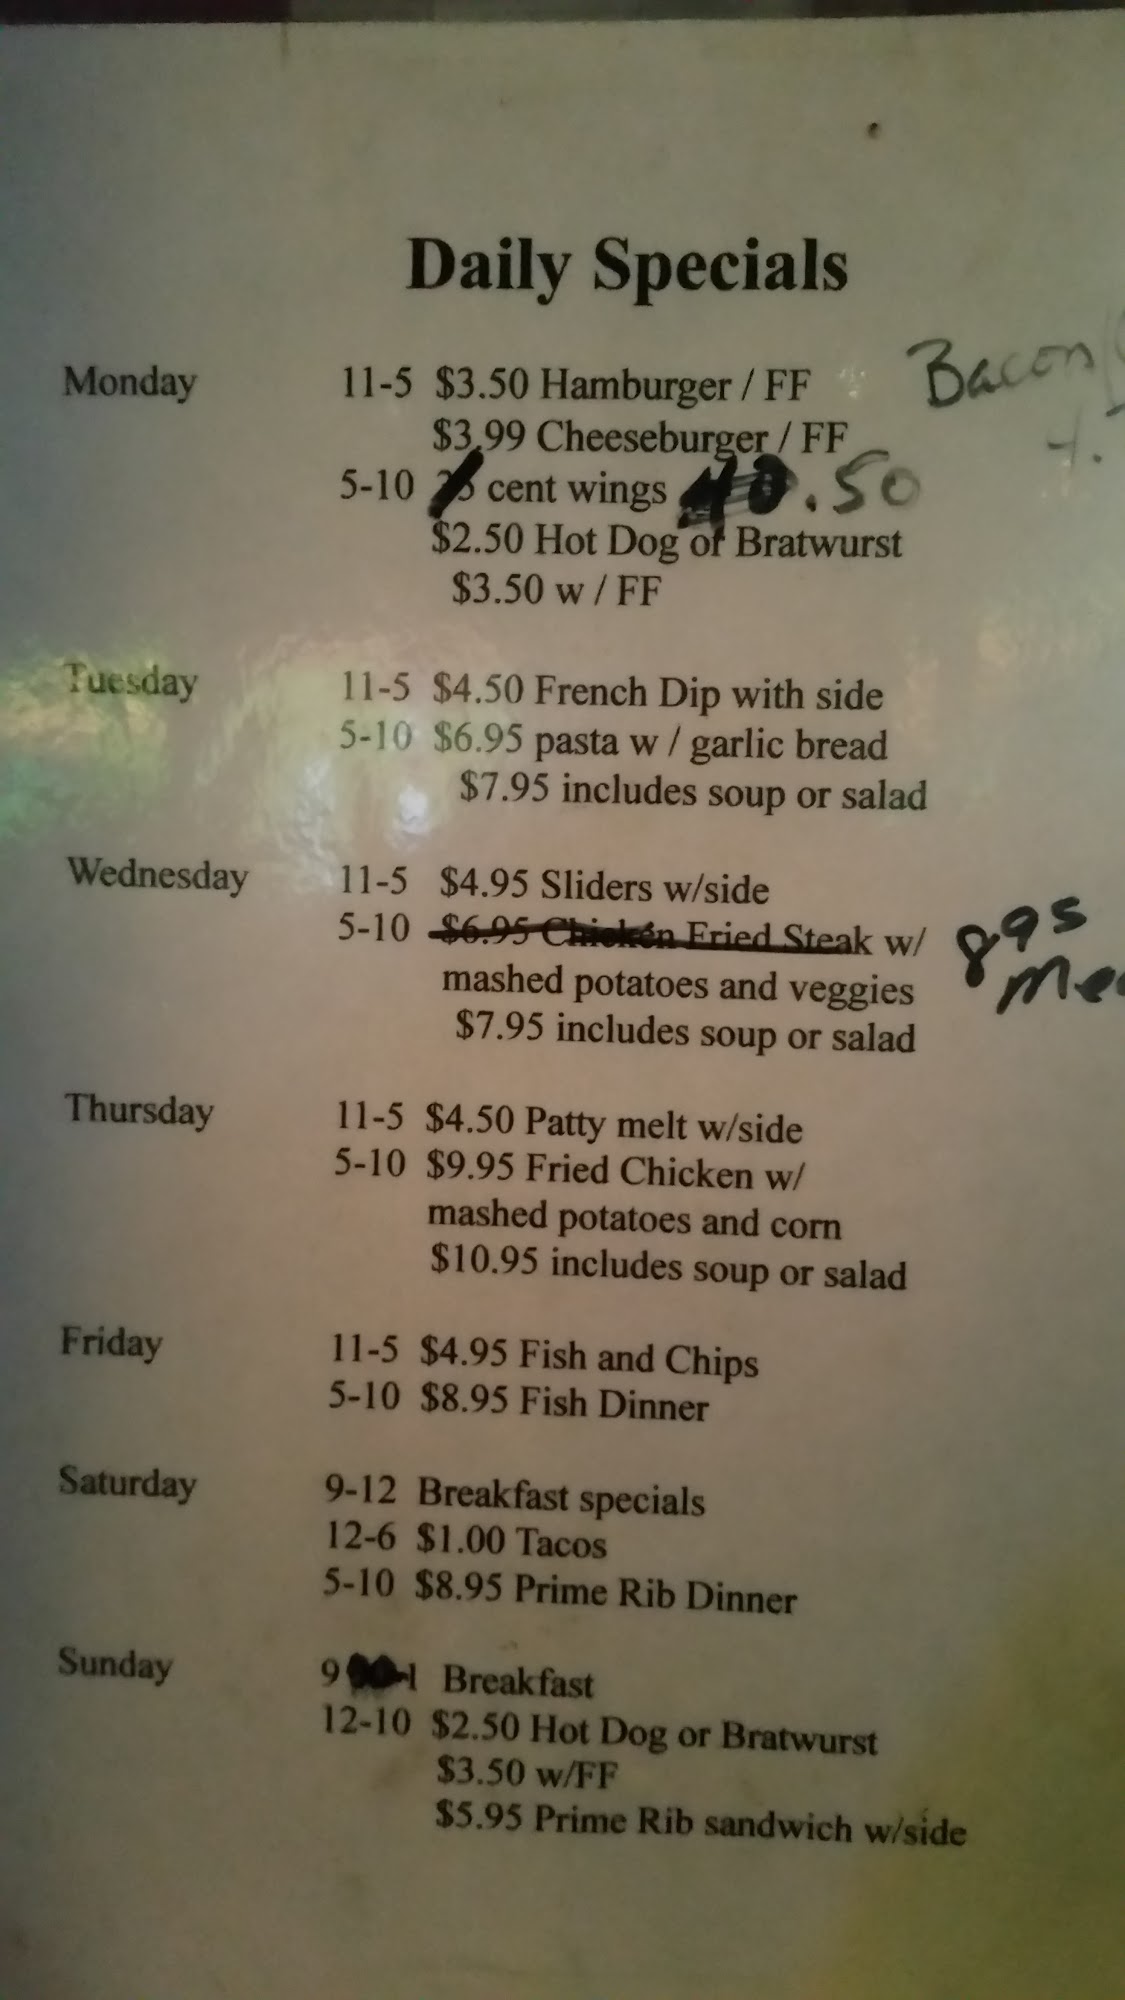 Daily Specials
Monday 11-5 $3.50 Hamburger / FF Bacon
$3.99 Cheeseburger / FF
5-10 cent wings .50
$2.50 Hot Dog or Bratwurst
$3.50 w / FF
Tuesday 11-5 $4.50 French Dip with side
5-10 $6.95 pasta w / garlic bread
$7.95 includes soup or salad
Wednesday 11-5 $4.95 Sliders w/side
5-10 $6.95 Chicken Fried Steak w/ 8 95
mashed potatoes and veggies
$7.95 includes soup or salad
Thursday 11-5 $4.50 Patty melt w/side
5-10 $9.95 Fried Chicken w/
mashed potatoes and corn
$10.95 includes soup or salad
Friday 11-5 $4.95 Fish and Chips
5-10 $8.95 Fish Dinner
Saturday 9-12 Breakfast specials
12-6 $1.00 Tacos
5-10 $8.95 Prime Rib Dinner
Sunday 9 -1 Breakfast
12-10 $2.50 Hot Dog or Bratwurst
$3.50 w/FF
$5.95 Prime Rib sandwich w/side